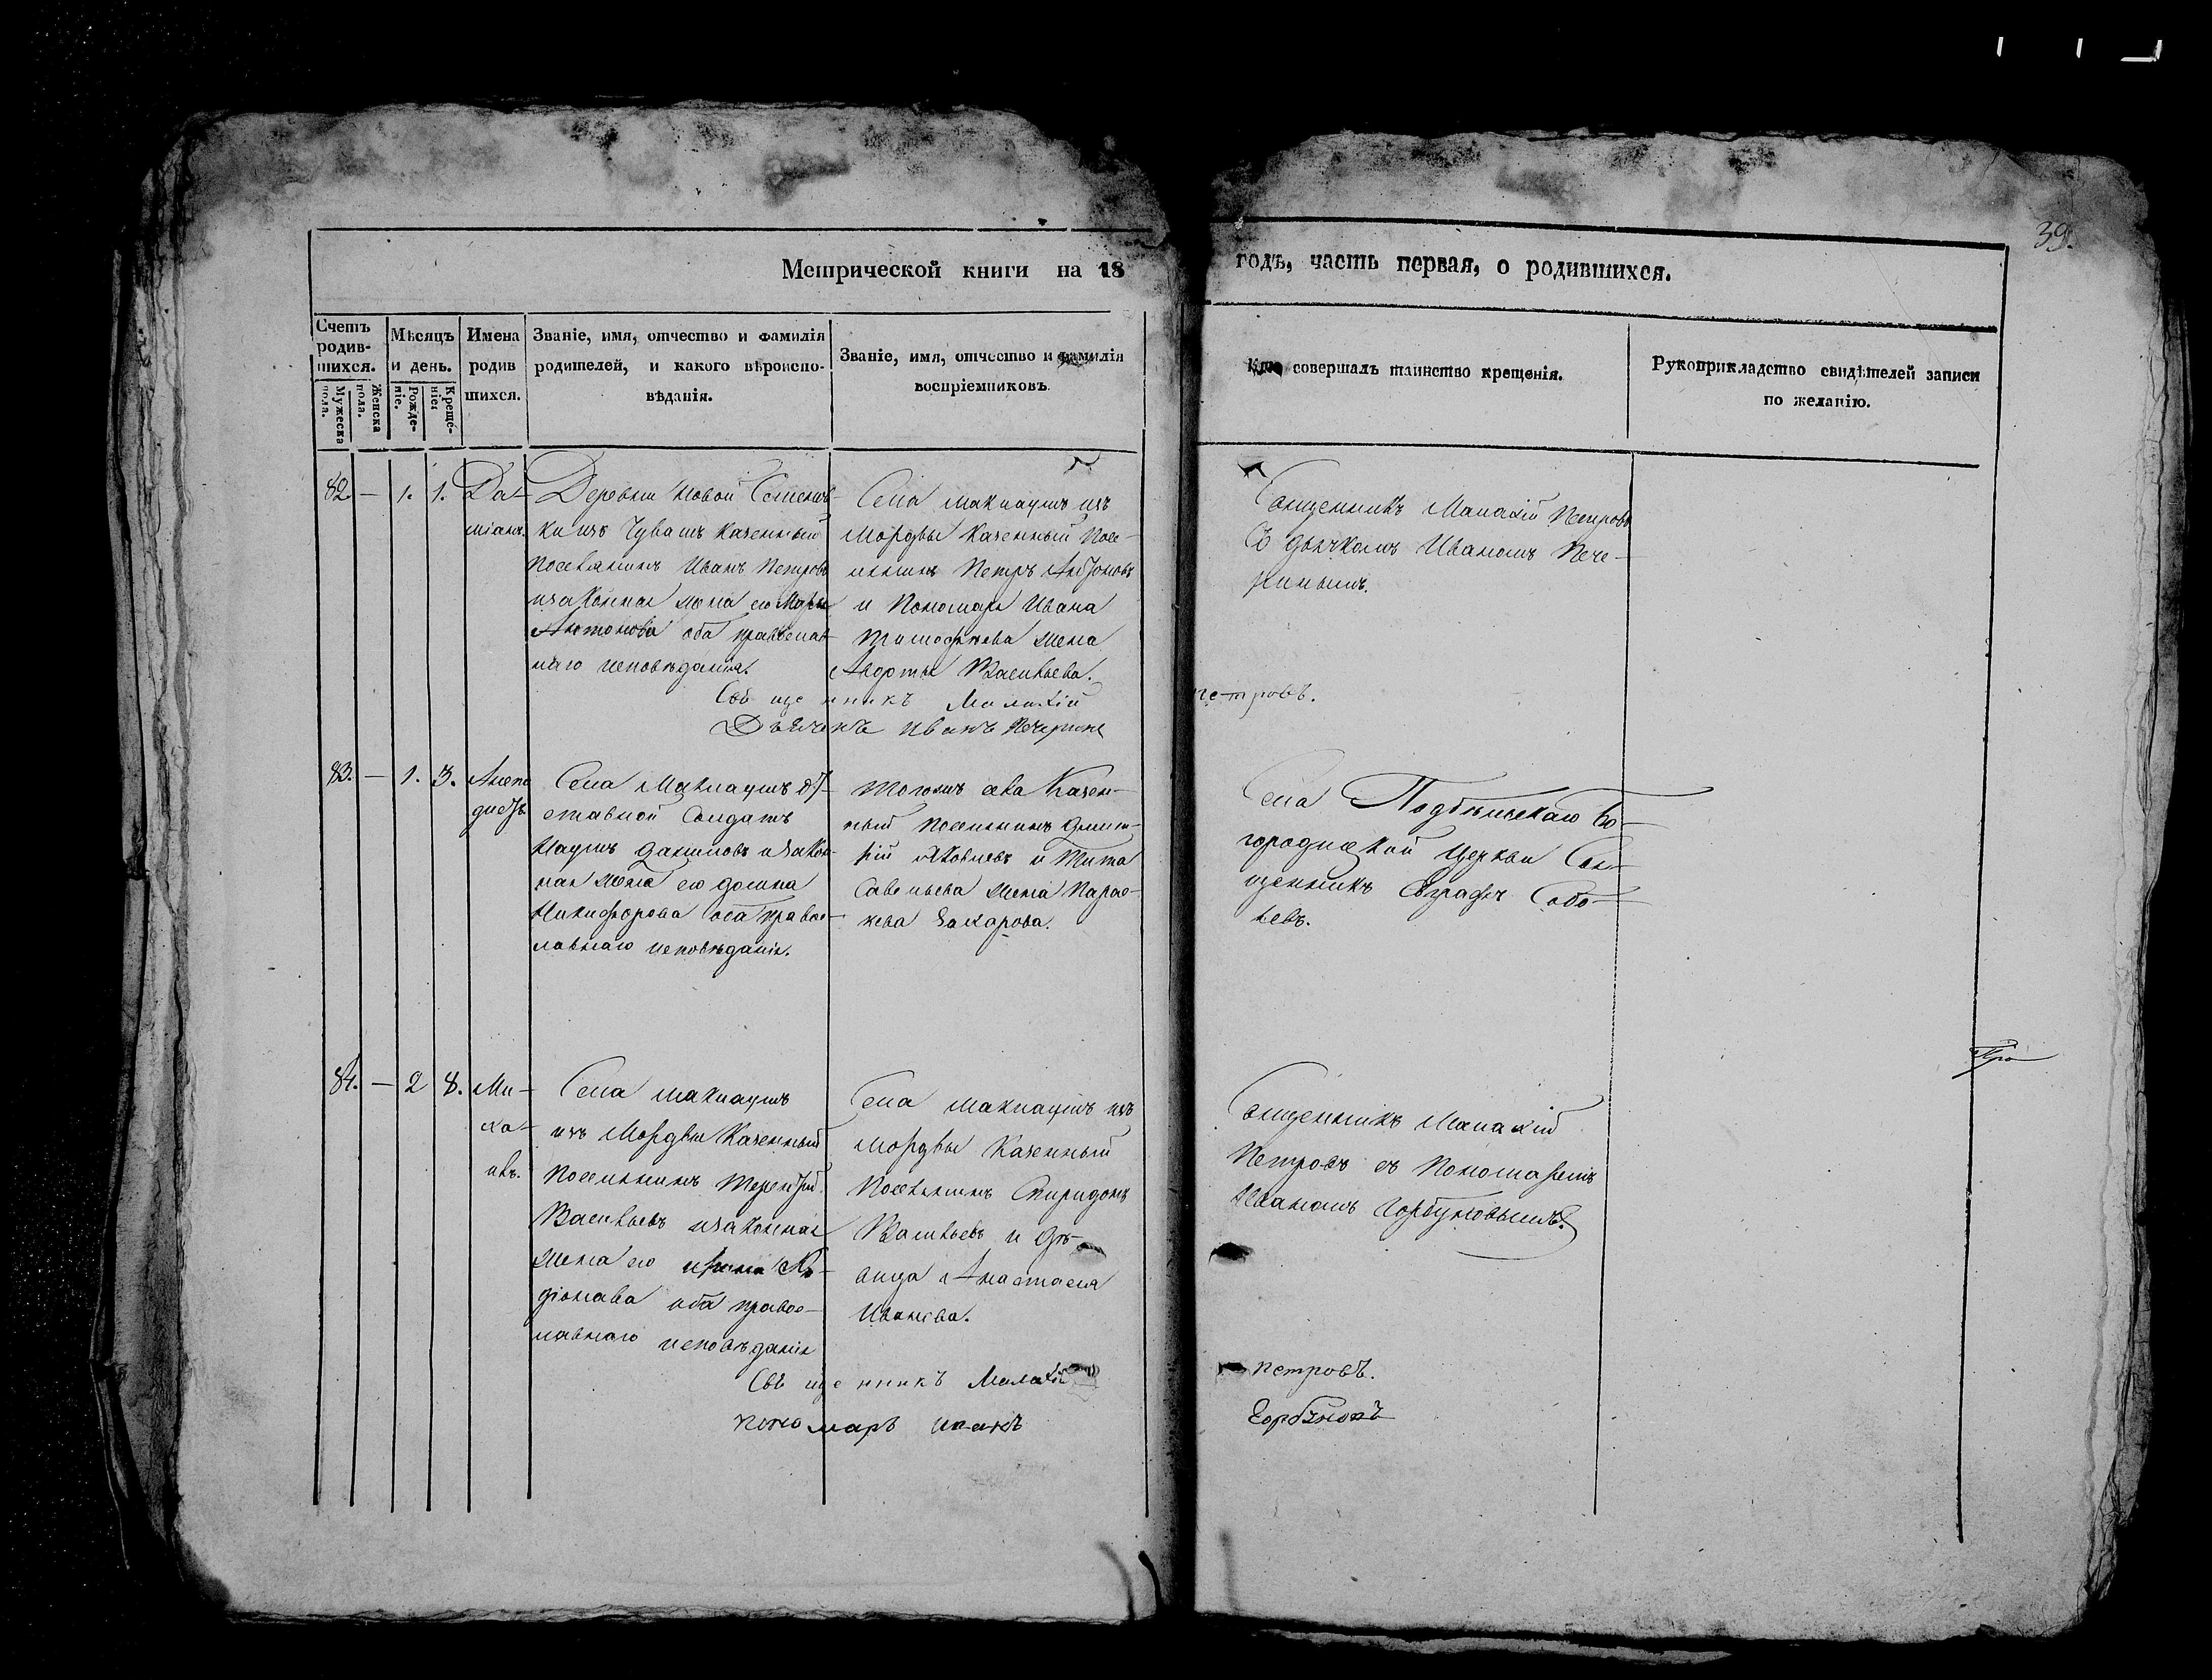 39.
Метрической книги на 18
годъ, часть первая, о родившихся.
Счетъ родившихся.
Мужеска пола.
Женска пола.
Мѣсяцъ и день.
Рожденіе.
Крещеніе.
Имена родив
шихся.
Званіе, имя, отчество и фамилія
родителей, и какого вѣроиспо-
вѣданія.
Званіе, имя, отчество и фамилія
воспріемниковъ.
Кто совершалъ таинство крещенія.
Рукоприкладство свидѣтелей записи
по желанію.
82. — 1. 1.
Да-
міанъ.
Деревни Новой Семенов-
ки изъ Чувашъ казенный
поселянинъ Иванъ Петровъ
и законная жена его
Антонова оба православ-
наго исповѣданія.
Села Маклаушъ изъ
Мордвы казенный посе-
лянинъ Петръ Антоновъ
и Пономаря Ивана
Тимофѣева жена
Васильева.
Священникъ Малахій Петровъ
съ дьячкомъ Иваномъ Пече-
ринымъ.
Священникъ Малахій Петровъ.
Дьячекъ Иванъ Печеринъ
83. — 1. 3.
Села Маклаушъ от-
ставной Солдатъ
Наумъ Даниловъ и закон-
ная жена его Домна
Никифорова оба правос-
лавнаго исповѣданія.
Тогожъ села Казен-
ный поселянинъ Дмит-
рій Яковлевъ и Тита
Савельева жена Парас-
кева Захарова.
Села Подбѣльскаго Бо-
городицкой Церкви Свя-
щенникъ Евграфъ Собо-
левъ.
84. — 2 8.
Ми-
ха-
илъ.
Села Маклаушъ
изъ Мордвы Казенный
поселянинъ Терентій
Васильевъ и законная
жена его Ирина Ро-
діонава оба правос-
лавнаго исповѣданія
Села Маклаушъ изъ
Мордвы Казенный
поселянинъ Спиридонъ
Васильевъ и дѣ-
вица Анастасія
Иванова.
Священникъ Малахій
Петровъ съ Пономаремъ
Иваномъ Горбуновымъ.
Священникъ Малахій Петровъ.
пономарь Иванъ Горбуновъ